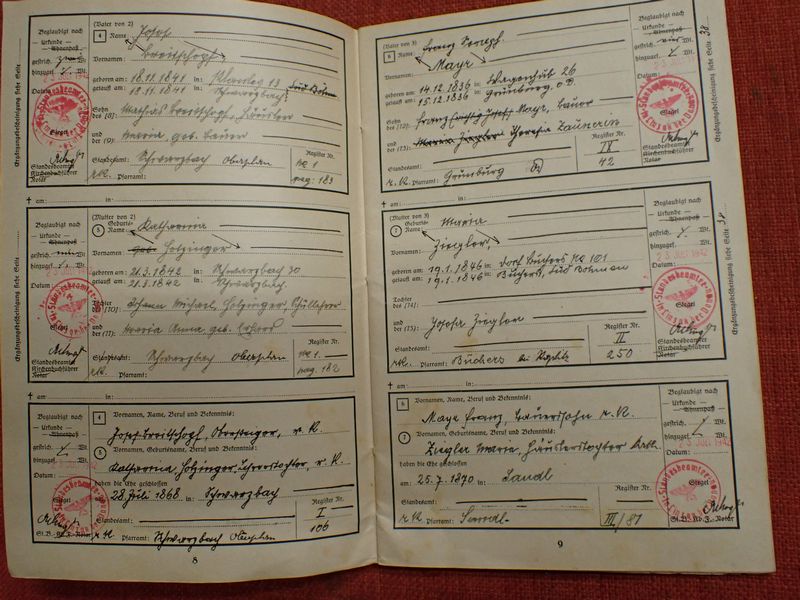 (Vater von 2)
4 Name: Josef
Breitschopf
Vornamen:
geboren am: 18.11.1841 in:
getauft am: 19.11.1841 in: Schwarzbach
Sohn des (8): Mathias Breitschopf, Häusler
und der (9): Maria geb. Bauer
Standesamt: Schwarzbach Oberplan
Register Nr. No 1
pag: 183
r.K. Pfarramt:
† am: in:
Beglaubigt nach
Urkunde
Ahnenpaß
gestrich. Wt.
hinzugef. Wt.
Datum:
Siegel
Standesbeamter
Kirchenbuchführer
Notar
Ergänzungsbescheinigung siehe Seite
(Mutter von 2)
5 Geburts-Name: Katharina
Holzinger
Vornamen:
geboren am: 21.3.1842 in: Schwarzbach 30
getauft am: 21.3.1842 in: Schwarzbach
Tochter des (10): Johann Michael, Holzinger, Schullehrer
und der (11): Maria Anna geb.
Standesamt: Schwarzbach Oberplan
Register Nr. No 1.
pag. 182
Pfarramt:
† am: in:
Beglaubigt nach
Urkunde
Ahnenpaß
gestrich. Wt.
hinzugef. Wt.
Datum:
Siegel
Standesbeamter
Kirchenbuchführer
Notar
Ergänzungsbescheinigung siehe Seite
4 Vornamen, Name, Beruf und Bekenntnis:
Josef Breitschopf, Obersteiger, r. K.
5 Vornamen, Geburtsname, Beruf und Bekenntnis:
Katharina Holzinger, Lehrerstochter r. K.
haben die Ehe geschlossen
am 28 Juli 1868 in: Schwarzbach
Standesamt:
Register Nr. I
106
r. K. Pfarramt: Schwarzbach Oberplan
Beglaubigt nach
Urkunde
Ahnenpaß
gestrich. Wt.
hinzugef. Wt.
Datum:
Siegel
St.B.-Kb.F.-Notar
8
(Vater von 3)
6 Name: Franz Joseph
Mayr
Vornamen:
geboren am: 14.12.1836 in: Wagenhub 26
getauft am: 15.12.1836 in: Grünburg, o.D.
Sohn des (12): Franz Joseph Mayr, Bauer
und der (13): Maria Ziegler Theresia Zaunerin
Standesamt:
Register Nr. IV
42
r. K. Pfarramt: Grünburg
† am: in:
Beglaubigt nach
Urkunde
Ahnenpaß
gestrich. Wt.
hinzugef. Wt.
Datum: 23. Juli 1942
Siegel
Standesbeamter
Kirchenbuchführer
Notar
Ergänzungsbescheinigung siehe Seite 38
(Mutter von 3)
7 Geburts-Name: Maria
Ziegler
Vornamen:
geboren am: 19.1.1846 in: Dorf Buchers No 101
getauft am: 19.1.1846 in: Buchers, Süd Böhmen
Tochter des (14):
und der (15): Josefa Ziegler
Standesamt:
Register Nr. II
250
r.K. Pfarramt: Buchers bei Kaplitz
† am: in:
Beglaubigt nach
Urkunde
Ahnenpaß
gestrich. Wt.
hinzugef. Wt.
Datum: 23. Juli 1942
Siegel
Standesbeamter
Kirchenbuchführer
Notar
Ergänzungsbescheinigung siehe Seite 38
6 Vornamen, Name, Beruf und Bekenntnis:
Mayr Franz, Bauerssohn r. K.
7 Vornamen, Geburtsname, Beruf und Bekenntnis:
Ziegler Maria Häuslerstochter
haben die Ehe geschlossen
am 25.7.1870 in: Sandl
Standesamt:
Register Nr. III/81
r. K. Pfarramt: Sandl
Beglaubigt nach
Urkunde
Ahnenpaß
gestrich. Wt.
hinzugef. Wt.
Datum: 23. Juli 1942
Siegel
St.B.-Kb.F.-Notar
9